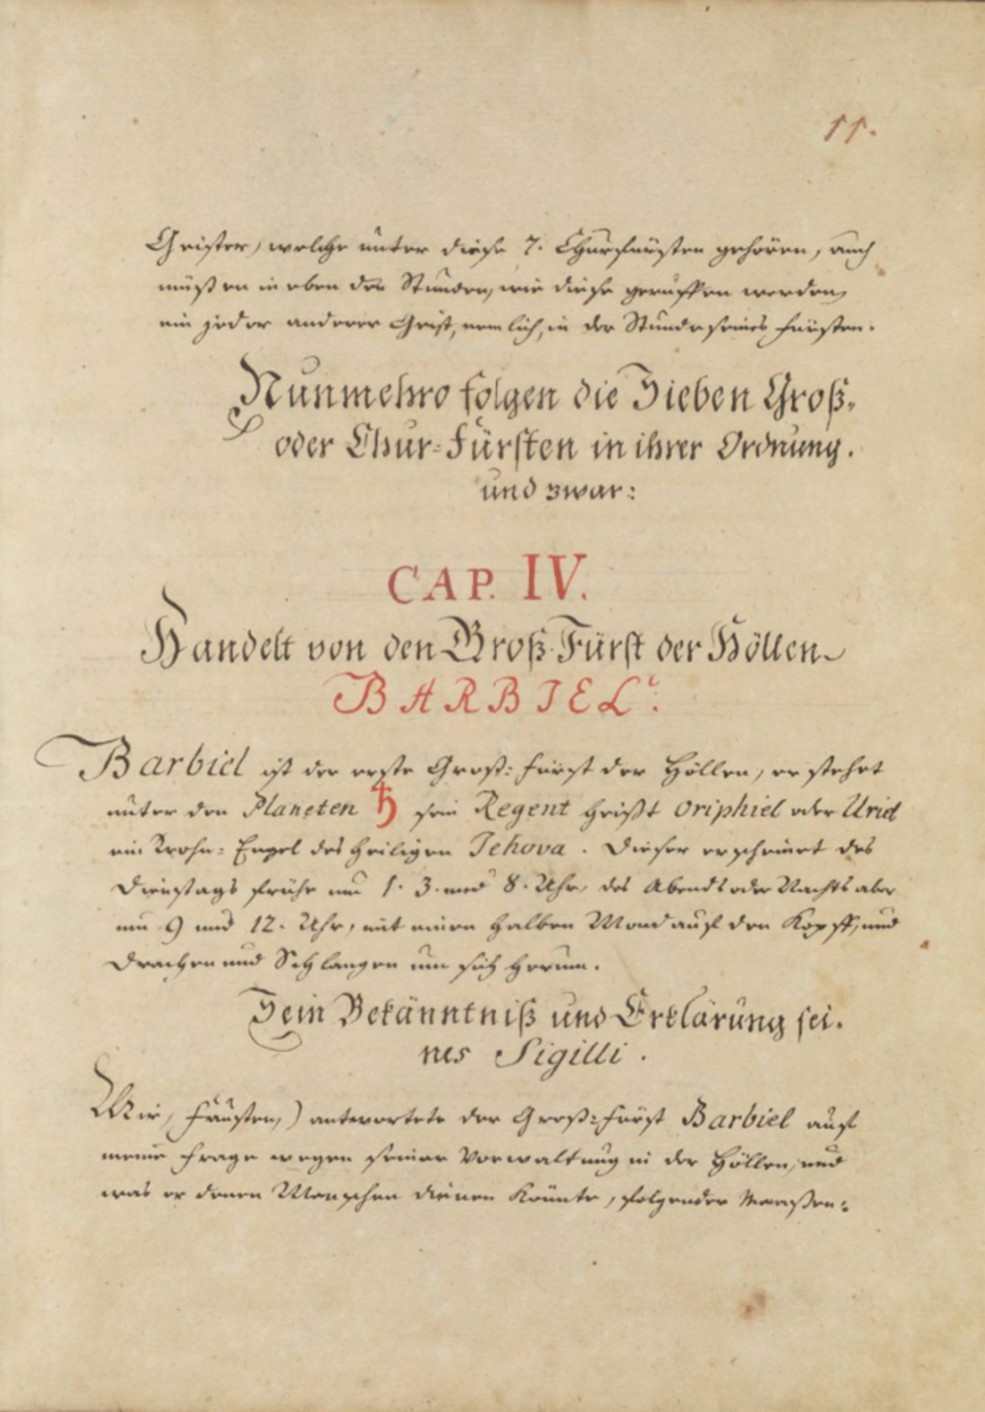 11.
Geister, welche unter diese 7. Churfürsten gehören, auch
müßen in eben den Stunden, wie diese geruffen werden,
ein jeder anderer Geist, nemlich, in der Stunde seines Fürsten.
Nunmehro folgen die Sieben Groß-
oder Chur-Fürsten in ihrer Ordnung.
und zwar:
CAP. IV.
Handelt von den Groß-Fürst der Höllen
BARBIEL:
Barbiel ist der erste Groß-Fürst der Höllen, er stehet
unter den Planeten ♄ sein Regent heißt Oriphiel oder Uriel
ein Trohn-Engel des heiligen Jehova. Dieser erscheinet des
Dienstags frühe um 1. 3. und 8. Uhr, des Abends oder Nachts aber
um 9 und 12. Uhr, mit einen halben Mond auf den Kopff, und
Drachen und Schlangen um sich herum.
Sein Bekänntniß und Erklärung sei-
nes Sigilli.
Mir, Fausten,) antwortete der Groß-Fürst Barbiel auf
meine Frage wegen seiner Verwaltung in der Höllen, und
was er denen Menschen dienen könnte, folgender Maaßen: